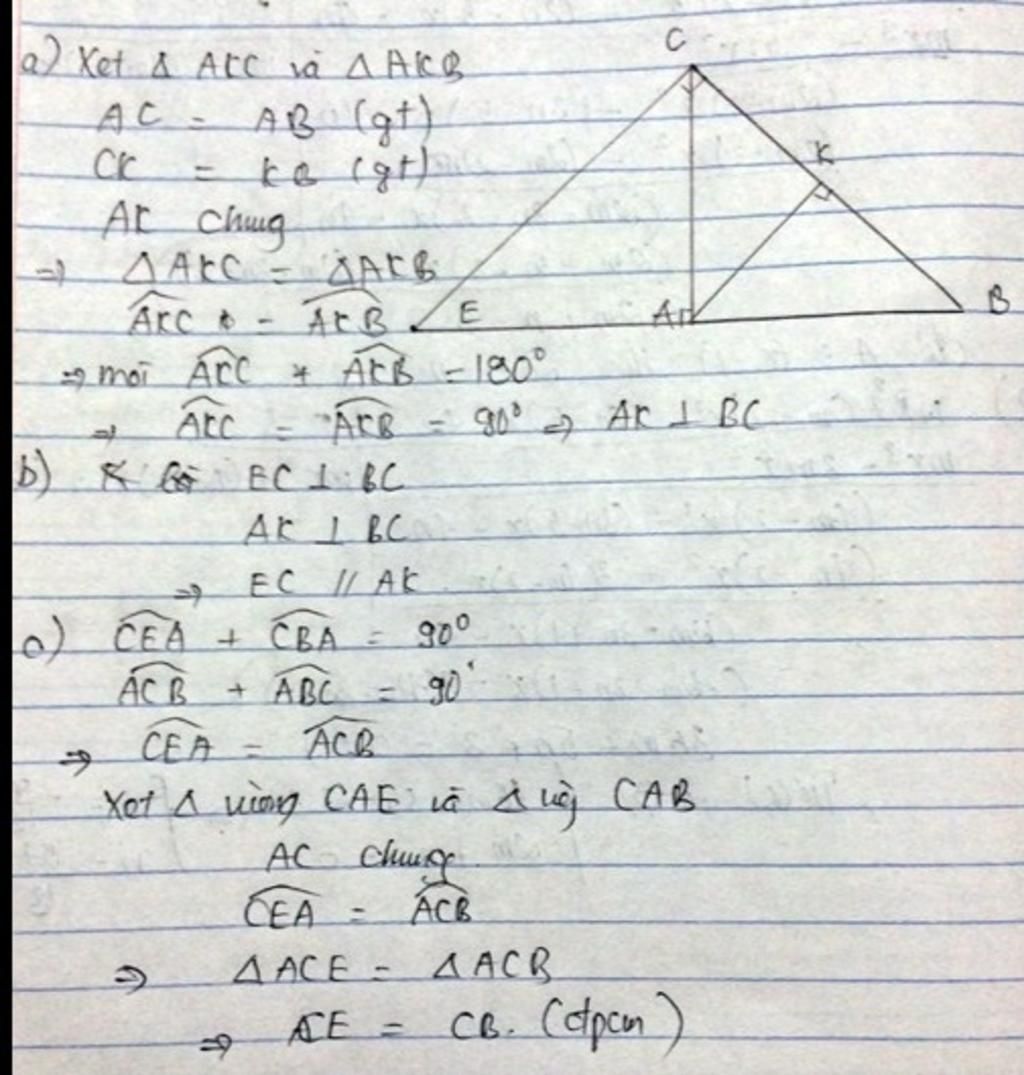 a) Xét Δ AKC và Δ AKB
AC = AB (gt)
CK = KB (gt)
AK chung
=> ΔAKC = ΔAKB
AKC = AKB
=> mà AKC + AKB = 180°
=> AKC = AKB = 90° => AK ⊥ BC
C
K
E
A
B
b) EC ⊥ BC
AK ⊥ BC
=> EC // AK
c) CEA + CBA = 90°
ACB + ABC = 90°
=> CEA = ACB
Xét Δ vuông CAE và Δ vg CAB
AC chung
CEA = ACB
=> ΔACE = ΔACB
=> CE = CB. (đpcm)